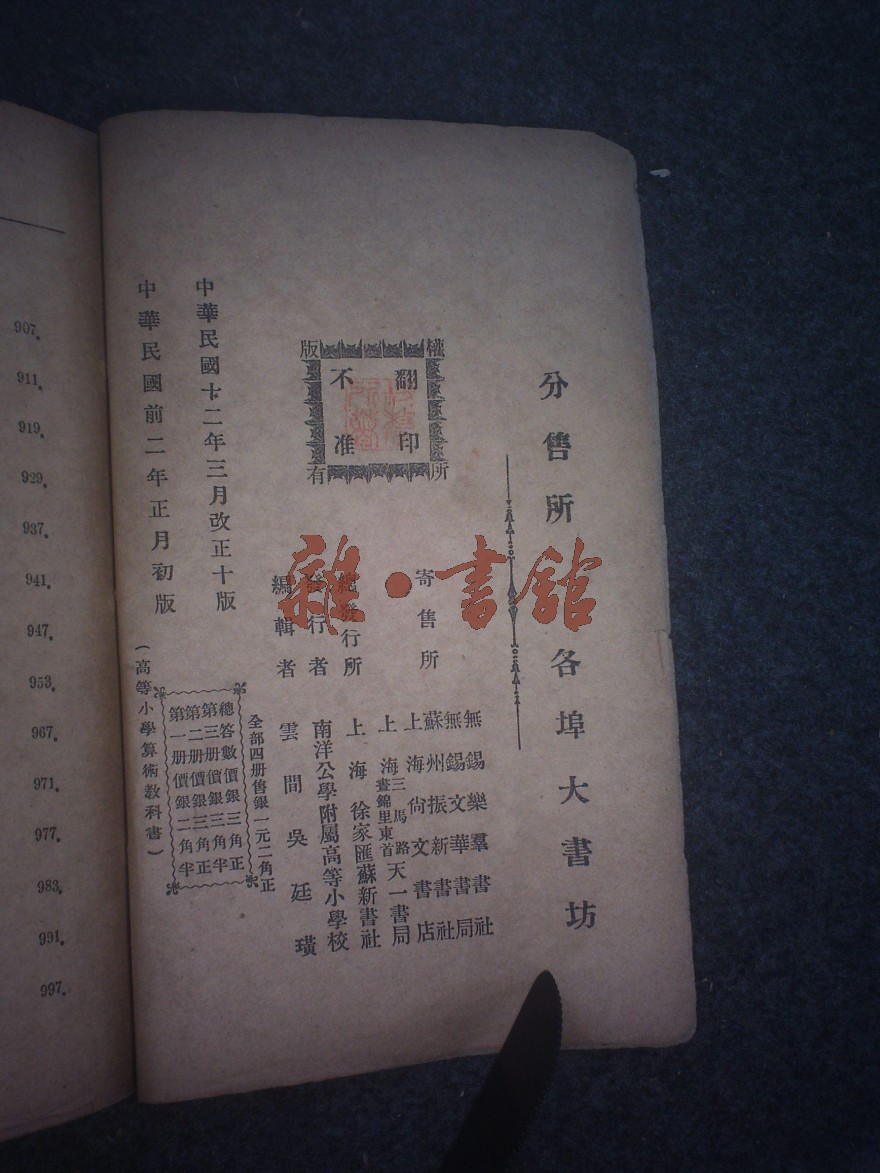 分售所各埠大書坊
寄售所
無錫樂羣書社
無錫文華書局
蘇州振新書社
上海尙文書店
上海三馬路畫錦里東首天一書局
總發行所 上海徐家匯蘇新書社
發行者 南洋公學附屬高等小學校
編輯者 雲間吳廷璜
版權所有
翻印不准
中華民國十二年三月改正十版
中華民國前二年正月初版
全部四册售銀一元二角正
總答數價銀三角正
第三册價銀三角半
第二册價銀三角正
第一册價銀二角半
(高等小學算術教科書)
907.
911.
919.
929.
937.
941.
947.
953.
967.
971.
977.
983.
991.
997.
雜·書舘